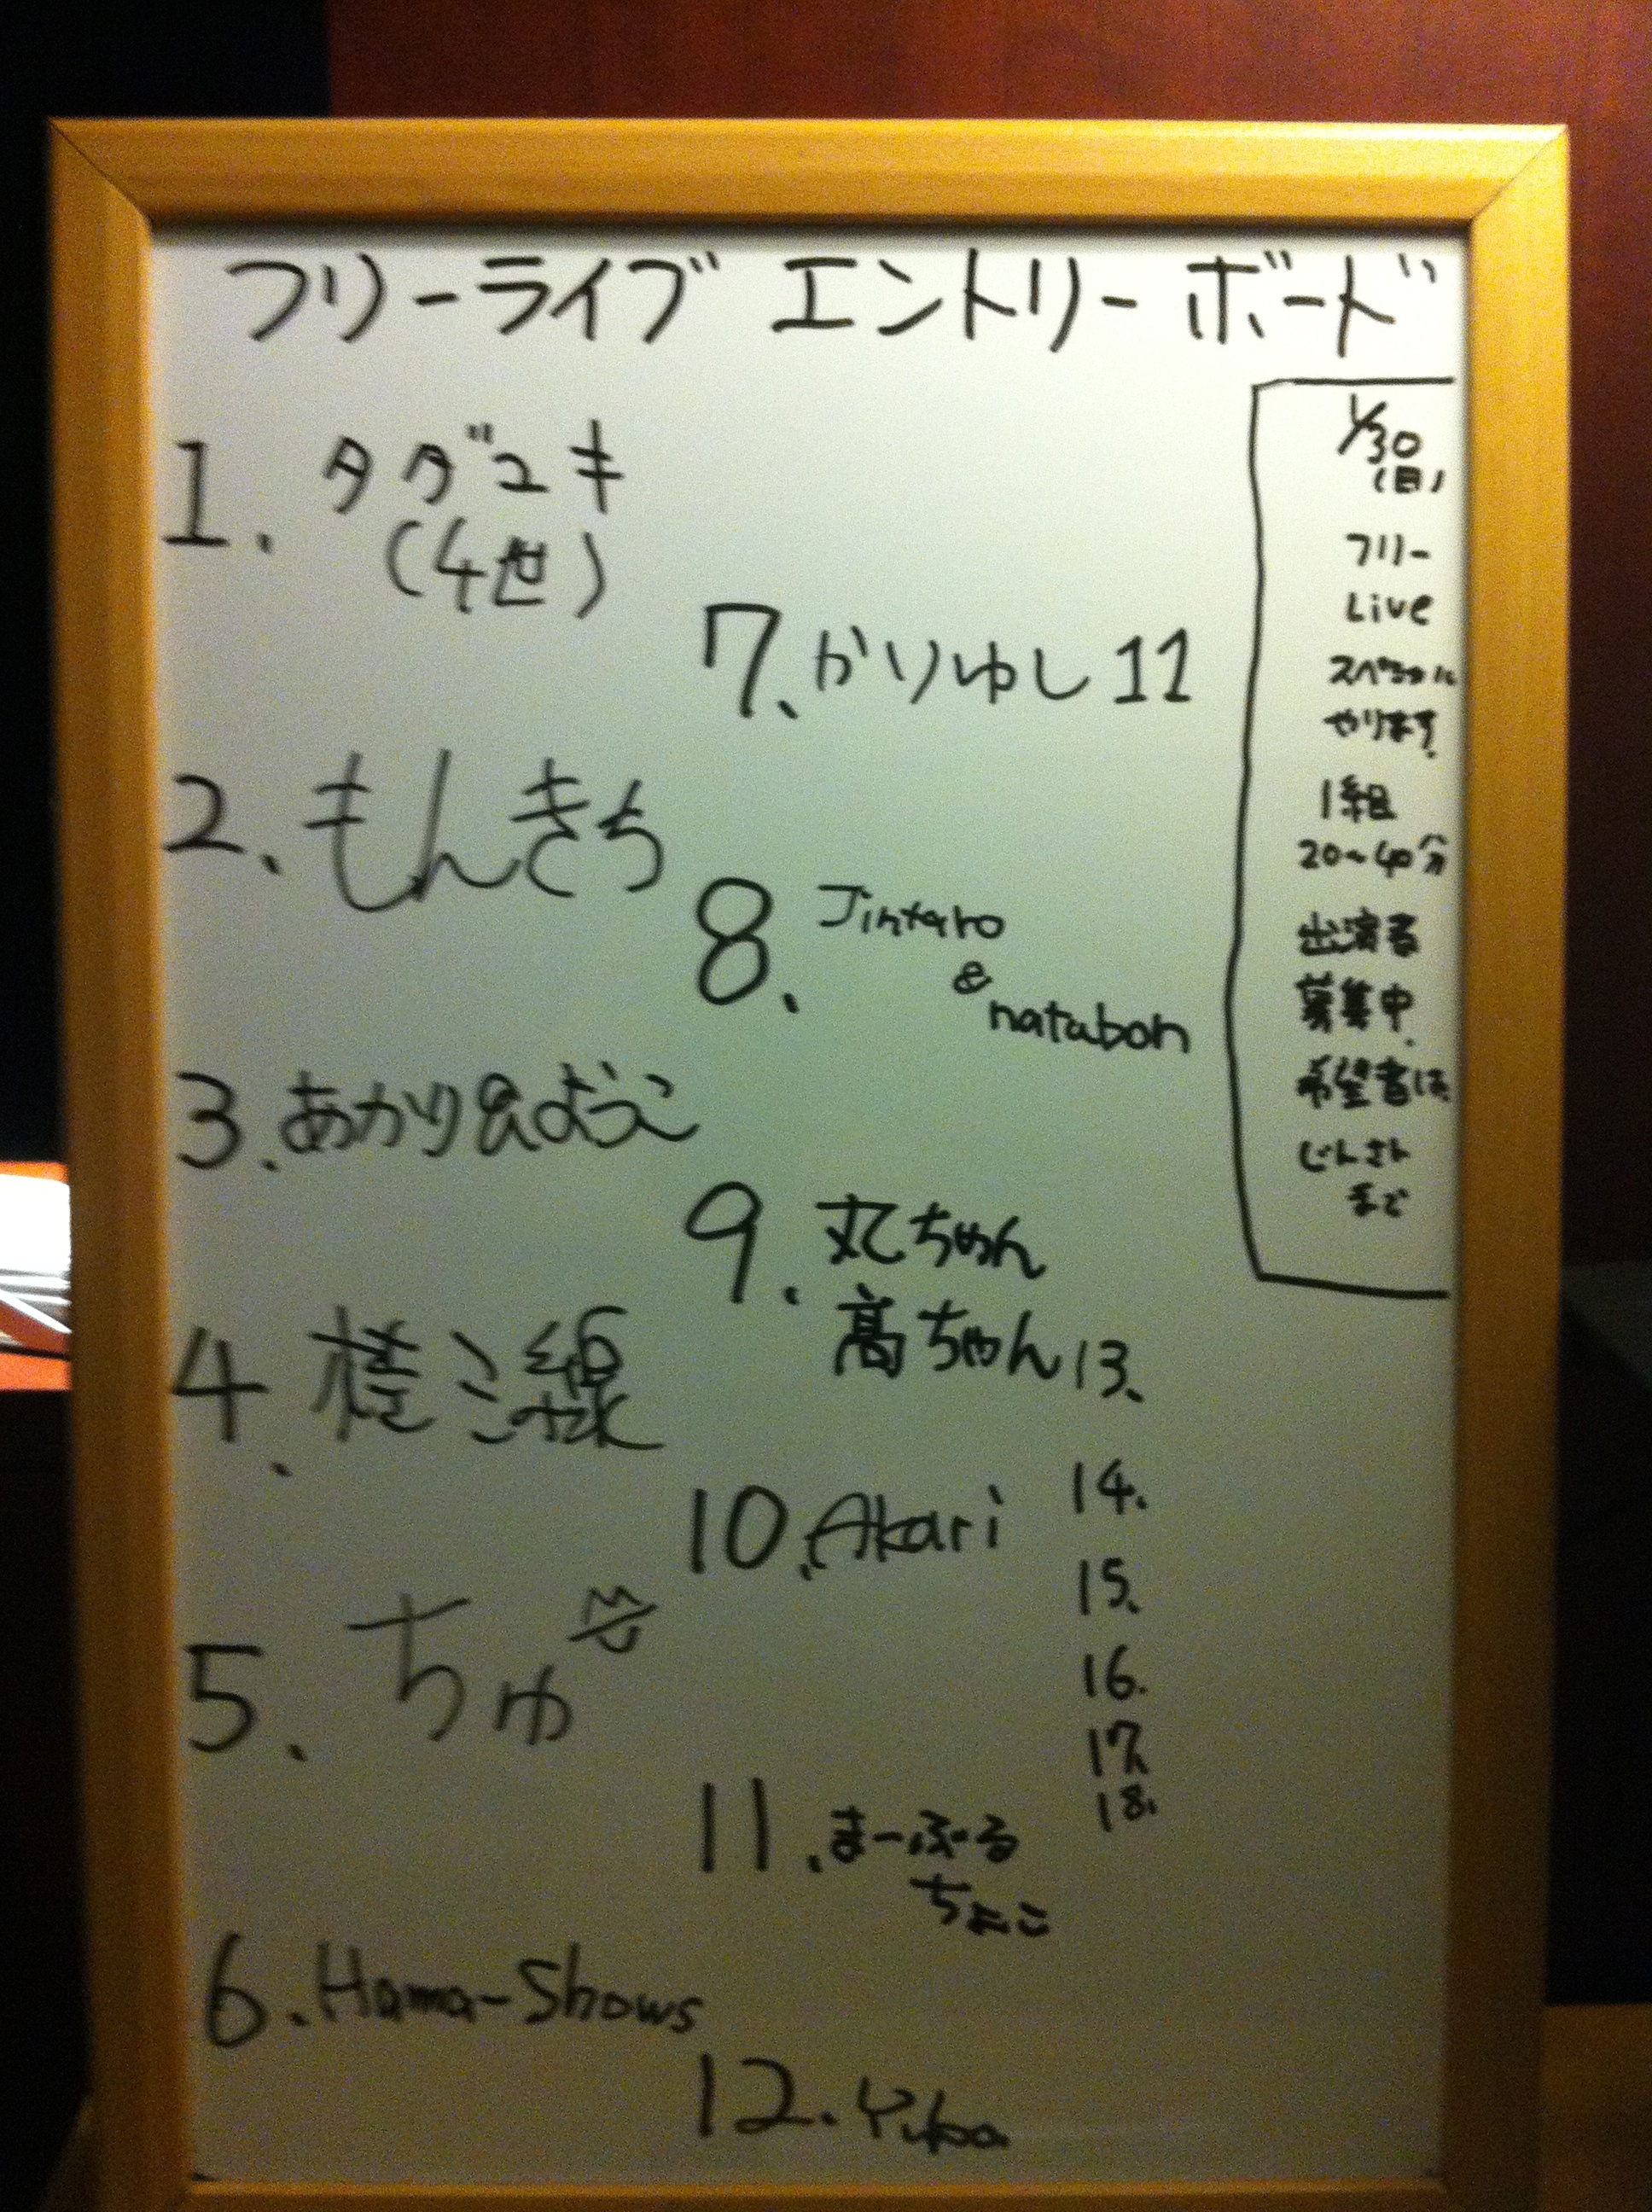 フリーライブ エントリーボード
1. タダユキ
(4世)
2. もんきち
3. あかり&ようこ
4.
5. ちゅ
6. Hama-Shows
7、かりゆし11
8. Jintaro
&
natabon
9. 丸ちゃん
高ちゃん
10. Akari
11. まーぶる
ちょこ
12.
13、
14.
15、
16.
17、
18、
1/30
(日)
フリー
Live
スペシャル
やります。
1組
20~40分
出演者
募集中.
希望者は、
じんさん
まで